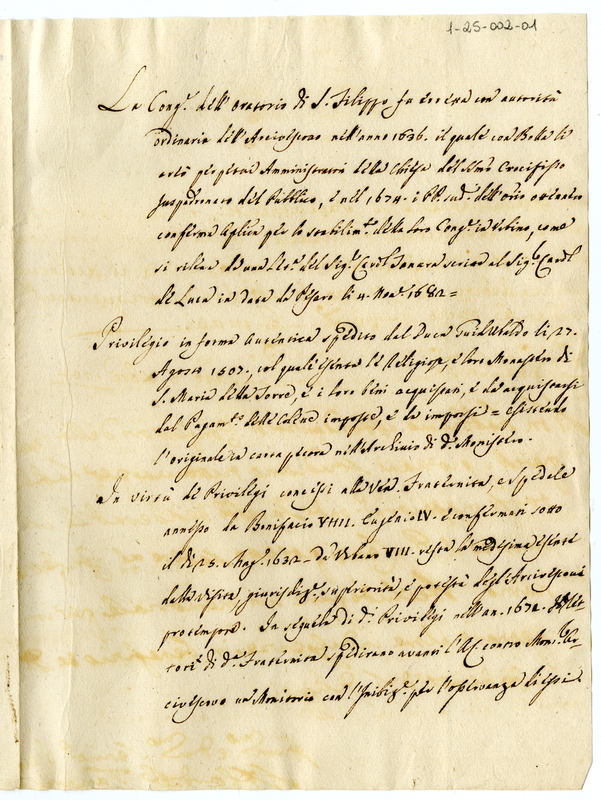 1-25-002-01
La Cong.e dell'Oratorio di S. Filippo fu eretta con autorità
ordinaria dell'Arcivescovo nell'anno 1636. il quale con Bolla li
perpetui Amministratori della Chiesa del SSmo Crocifisso
Juspadronato del Pubblico, e nel 1674. i PP. sud.i dell'Orio ottennero
conferma Aplica per lo stabilim.to della loro Cong.e in Urbino, come
si rileva da una del Sig.r Card.l scritta al Sig.r Card.l
de Luca in data di Pesaro li 4. Nov.e 1682 =
Privilegio in forma autentica spedito dal Duca Guidubaldo li 27.
Agosto 1507. col quale esenta le Religiose, e loro Monastero di
S. Maria della Torre, e i loro beni acquistati, e da acquistarsi
dal Pagam.to delle Colette imposte, e da imporsi = esistendo
l'originale in carta pecora nell'Archivio di d.o Monistero.
In virtù de Privilegi concessi alla Ven. Fraternita, e Spedale
annesso da Bonifacio VIIII. Eugenio IV. e confermati sotto
il dì 25. Mag.o 1632 da Urbano VIII. resta la medesima esente
dalla visita, giurisdiz.e, superiorità, e potestà degl'Arcivescovi
protempore. In seguela di d.i Privilegi nell'an. 1672.
di d.a Fraternita spedirono avanti l'AC contro Mons.r Ar-
civescovo un Monitorio con l'Inibiz.e per l'osservanza di essi.